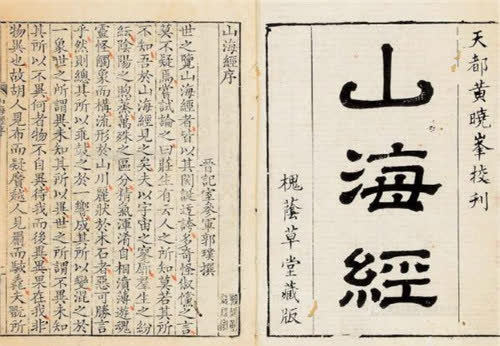 天都黄曉峯校刊
山海經
槐蔭草堂藏版
山海經序
晉記室參軍郭璞撰
世之覽山海經者皆以其閎誕迂誇多奇怪俶儻之言
莫不疑焉嘗試論之曰莊生有云人之所知莫若其所
不知吾於山海經見之矣夫以宇宙之寥廓羣生之紛
紜陰陽之煦蒸萬殊之區分精氣渾淆自相濆薄遊魂
靈怪觸象而構流形於山川麗狀於木石者惡可勝言
乎然則總其所以乖鼓之於一響成其所以變混之於
一象世之所謂異未知其所以異世之所謂不異未知
其所以不異何者物不自異待我而後異異果在我非
物異也故胡人見布而疑黂越人見罽而駭毳夫翫所